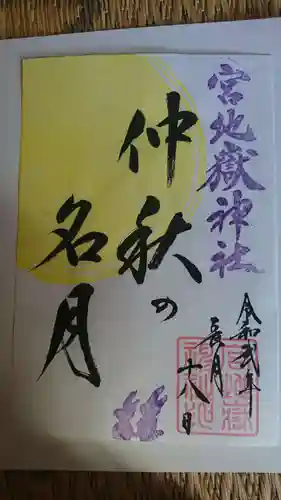 宮地嶽神社
仲秋の
名月
令和弐年
長月
十八日